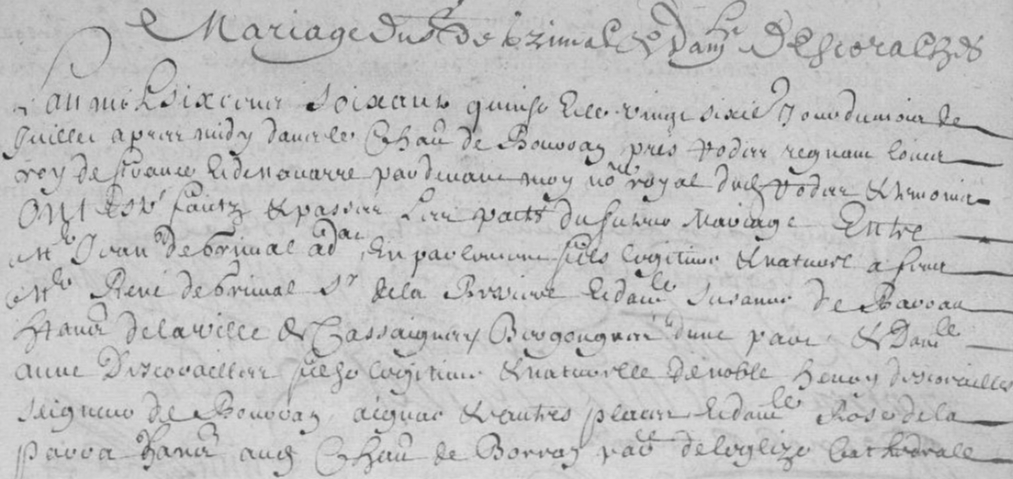 Mariage du Sr de brimal & Damlle Descorailhes
Lan mil six cens soixante quinse & le vingt sixie Jour du mois de
Juillet apres midy dans le Chau de Bourran pres Rodes regnant Louis
roy de france & de navarre par devant moy nore royal dud Rodes & temoins
ONt Este faitz & passes Les pacts du futur Mariage Entre
Mr Jean de brimal adat En parlement fils legitime & naturel a feus
Mr René de brimal Sr de la Reviere & damlle Susanne de
habans de la ville de Chassaignes dune part & Damlle
anne Descorailles filhe legitime & naturelle de noble Henry descorailles
seigneur de Bourran & autres places & damlle Rose de la
Parra habans aud Chau de Borran de leglize Cathedrale